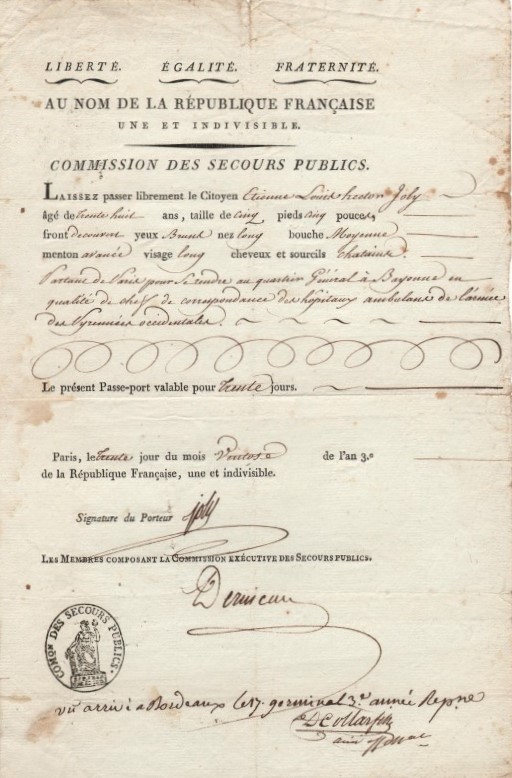 LIBERTÉ. ÉGALITÉ. FRATERNITÉ.
AU NOM DE LA RÉPUBLIQUE FRANÇAISE
UNE ET INDIVISIBLE.
COMMISSION DES SECOURS PUBLICS.
LAISSEZ passer librement le Citoyen Etienne Louis hector Joly
âgé de trente huit ans, taille de cinq pieds cinq pouces,
front decouvert yeux Bruns nez long bouche Moyenne
menton avancé visage long cheveux et sourcils chatains.
Partant de Paris pour se rendre au quartier Général à Bayonne en
qualité de chef de correspondance des hopitaux ambulans de l'armée
des Pyrennées occidentales.
Le présent Passe-port valable pour trente jours.
Paris, le trente jour du mois Ventose de l'an 3.e
de la République Française, une et indivisible.
Signature du Porteur Joly
LES MEMBRES COMPOSANT LA COMMISSION EXÉCUTIVE DES SECOURS PUBLICS.
COMON. DES SECOURS PUBLICS.
vu arrivé a Bordeaux le 17. germinal 3e année Repne